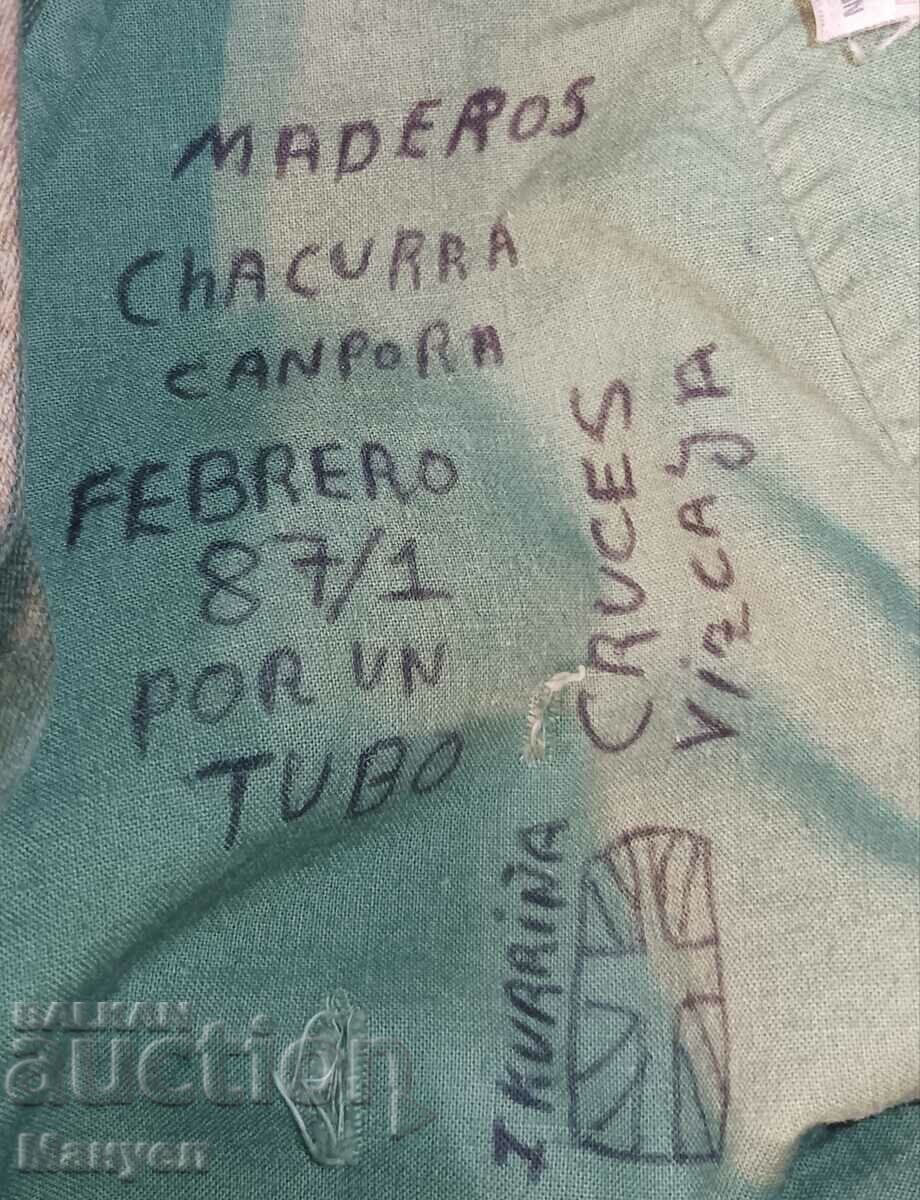 MADEROS
ChACURRA
CANPORA
FEBRERO
87/1
POR UN
TUBO
CRUCES
VIZCAYA
IKURRIÑA
BALKAN
auction
Manyen